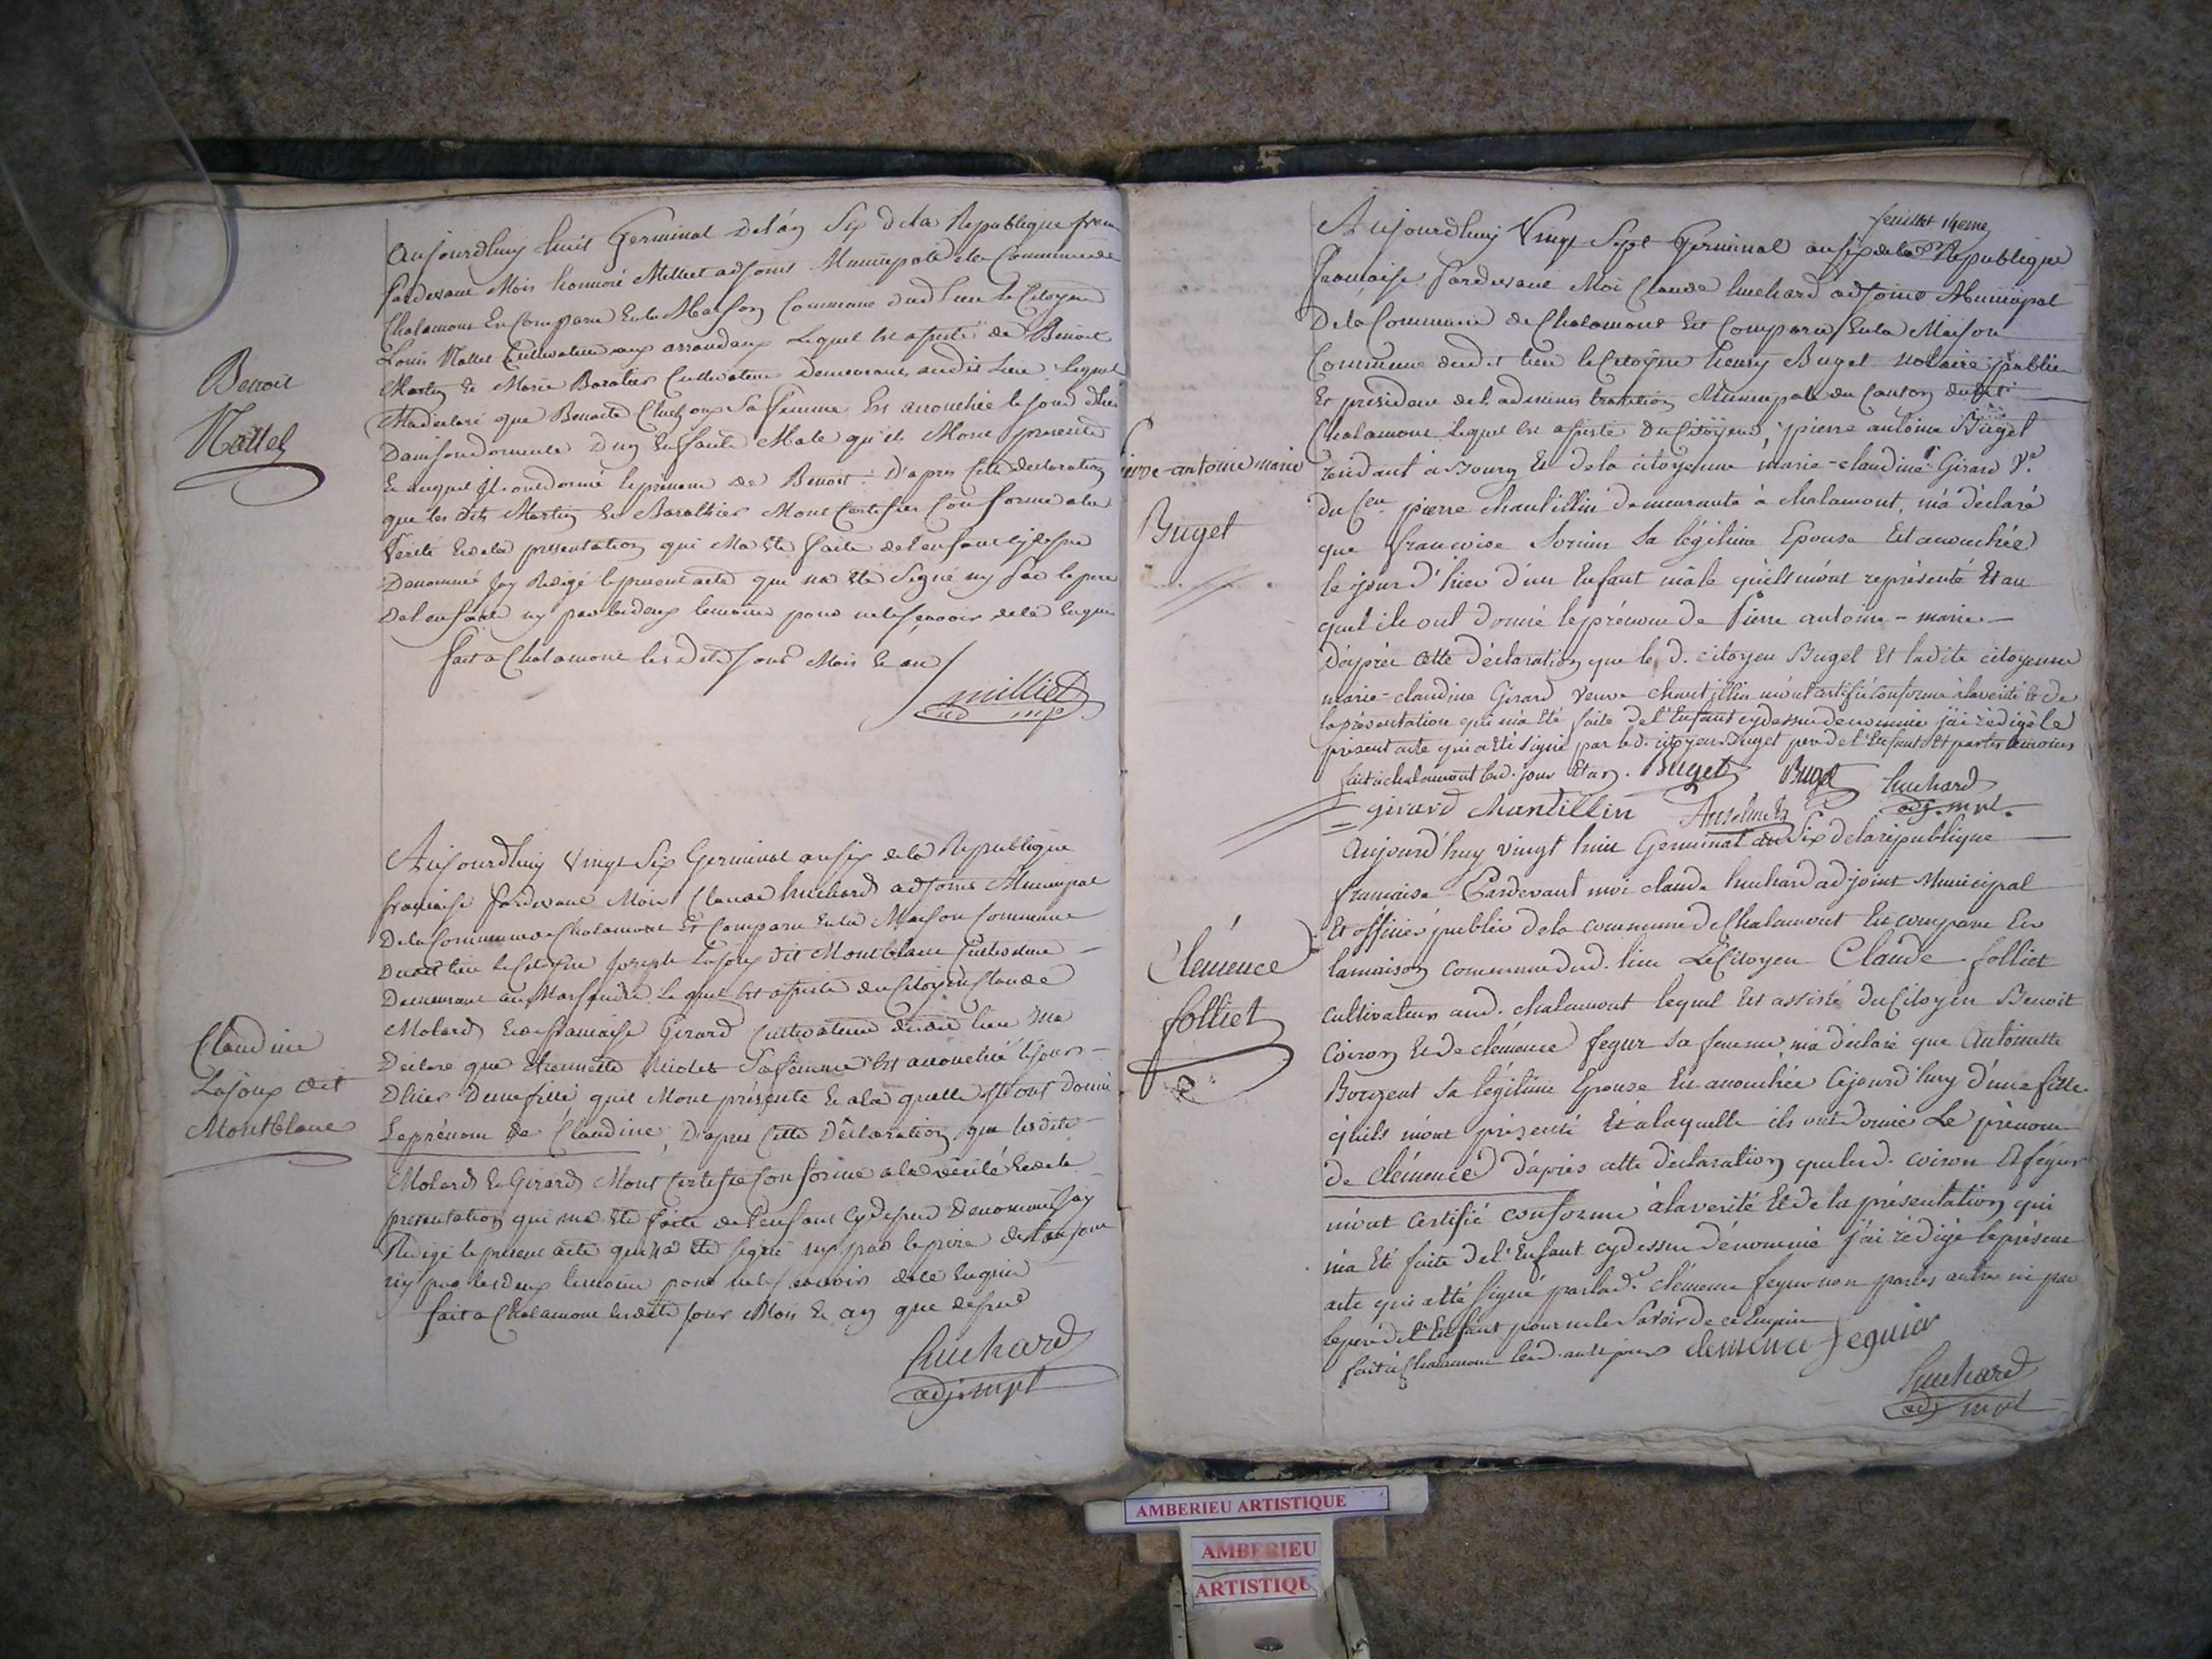 Benoit
Nallet
Aujourdhuy huit Germinal de l'an Six de la Republique
pardevant Mois honnoré Milliet adjoint Municipale de la Commune de
Chalamont Est Comparu En la Maison Commune dud lieu le Citoyen
Louis Nallet Cultivateur aux arrandaux Lequel Est assisté de Benoit
Martin & Marie Baratier Cultivateur Demeurant audit Lieu Lequel
Ma déclaré que Benoite Cluchon Sa femme Est accouchée le jour dhier
D'un Enfant Male qu'il Mont presenté
Et auquel Il ont donné le prenom de Benoit. D'apres cette declaration
que les dits Martin & Baratier Mont Certifier Conforme a la
Vérité Et de la presentation qui Ma Eté faite de l'enfant cy dessus
Denommé Jay Redigé le present acte que na Eté Signé ny par le pere
De l'enfant ny par les deux temoins pour ne le scavoir de ce Enquis
fait a Chalamont les dits jour Mois & an
Milliet
ad mp
Claudine
Lajoux dit
Montblanc
Aujourdhuy Vingt Six Germinal an six de la Republique
française pardevant Moi Claude huchard adjoint Municipal
De la Commune de Chalamont Est Comparu En la Maison Commune
Dudit lieu le Citoyen Joseph Lajoux dit Montblanc Cultivateur
Demeurant au le quel Est assisté du Citoyen Claude
Molard Et de françoise Girard Cultivateur dudit lieu Ma
Déclaré que Etiennette Nicolet Sa femme Est accouchée le jour
D'hier D'une fille quil Mont présenté & a la quelle Il ont donné
Le prénom de Claudine, D'apres Cette Déclaration que lesdits
Molard & Girard Mont Certifié Conforme a la vérité Et de la
presentation qui ma Eté faite de l'enfant cy dessus Denommé Jay
Redigé le present acte qui na Eté signé ny par le père de l'enfant
ny par les deux temoins pour ne le scavoir de ce Enquis
fait a Chalamont lesdits jour Mois & an que dessus
huchard
adj mpl
feuillet 14eme
Aujourdhuy Vingt Sept Germinal an six de la Republique
française Pardevant Moi Claude huchard adjoint Municipal
De la Commune de Chalamont Est Comparu En la Maison
Commune dudit lieu le Citoyen henry Buget notaire public
Et president de l'administration Municipale du Canton dudit
Chalamont Lequel Est assisté Du Citoyen pierre antoine Buget
résidant à Bourg Et de la citoyenne marie-claudine Girard Ve
du Cen pierre chantillin demeurante à chalamont, m'a déclaré
que francoise Sa légitime Epouse Est accouchée
le jour d'hier d'un Enfant mâle qu'ils m'ont représenté Et au
quel ils ont donné le prénom de Pierre antoine-marie.
D'après cette déclaration que le d. citoyen Buget Et ladite citoyenne
marie-claudine Girard veuve chantillin m'ont certifié conforme à la verité & de
la présentation qui m'a Eté faite de l'Enfant cy dessus denommé j'ai rédigé le
présent acte qui a été signé par led. citoyen Buget pere de l'Enfant Et par les temoins
fait a chalamont led. jour Et an. Buget Buget huchard
girard Chantillin adj. mpl.
ierre-antoine marie
Buget
Aujourd'huy vingt huit Germinal an Six de la république
française Pardevant moi claude huchard adjoint Municipal
Et officier public de la commune de Chalamont Est comparu En
la maison commune dud. lieu Le Citoyen Claude folliet
cultivateur aud. chalamont lequel Est assisté du Citoyen Benoit
Coiron Et de clémence fegur sa femme m'a déclaré que Antoinette
Bourgent sa légitime Epouse Est accouchée cejourd'huy d'une fille
qu'ils m'ont présenté Et à laquelle ils ont donné Le prénom
de clémence d'après cette déclaration que lesd. coiron Et fégur
m'ont certifié conforme à la verité Et de la présentation qui
m'a Eté faite de l'Enfant cy dessus dénommé j'ai rédigé le présent
acte qui a été signé par lad. clémence fegur non par les autres ni par
le père de l'Enfant pour ne le Savoir de ce Enquis
fait à Chalamont led. an Et jour clemence feguier
huchard
adj mpl
Clémence
folliet
AMBERIEU ARTISTIQUE
AMBERIEU
ARTISTIQU